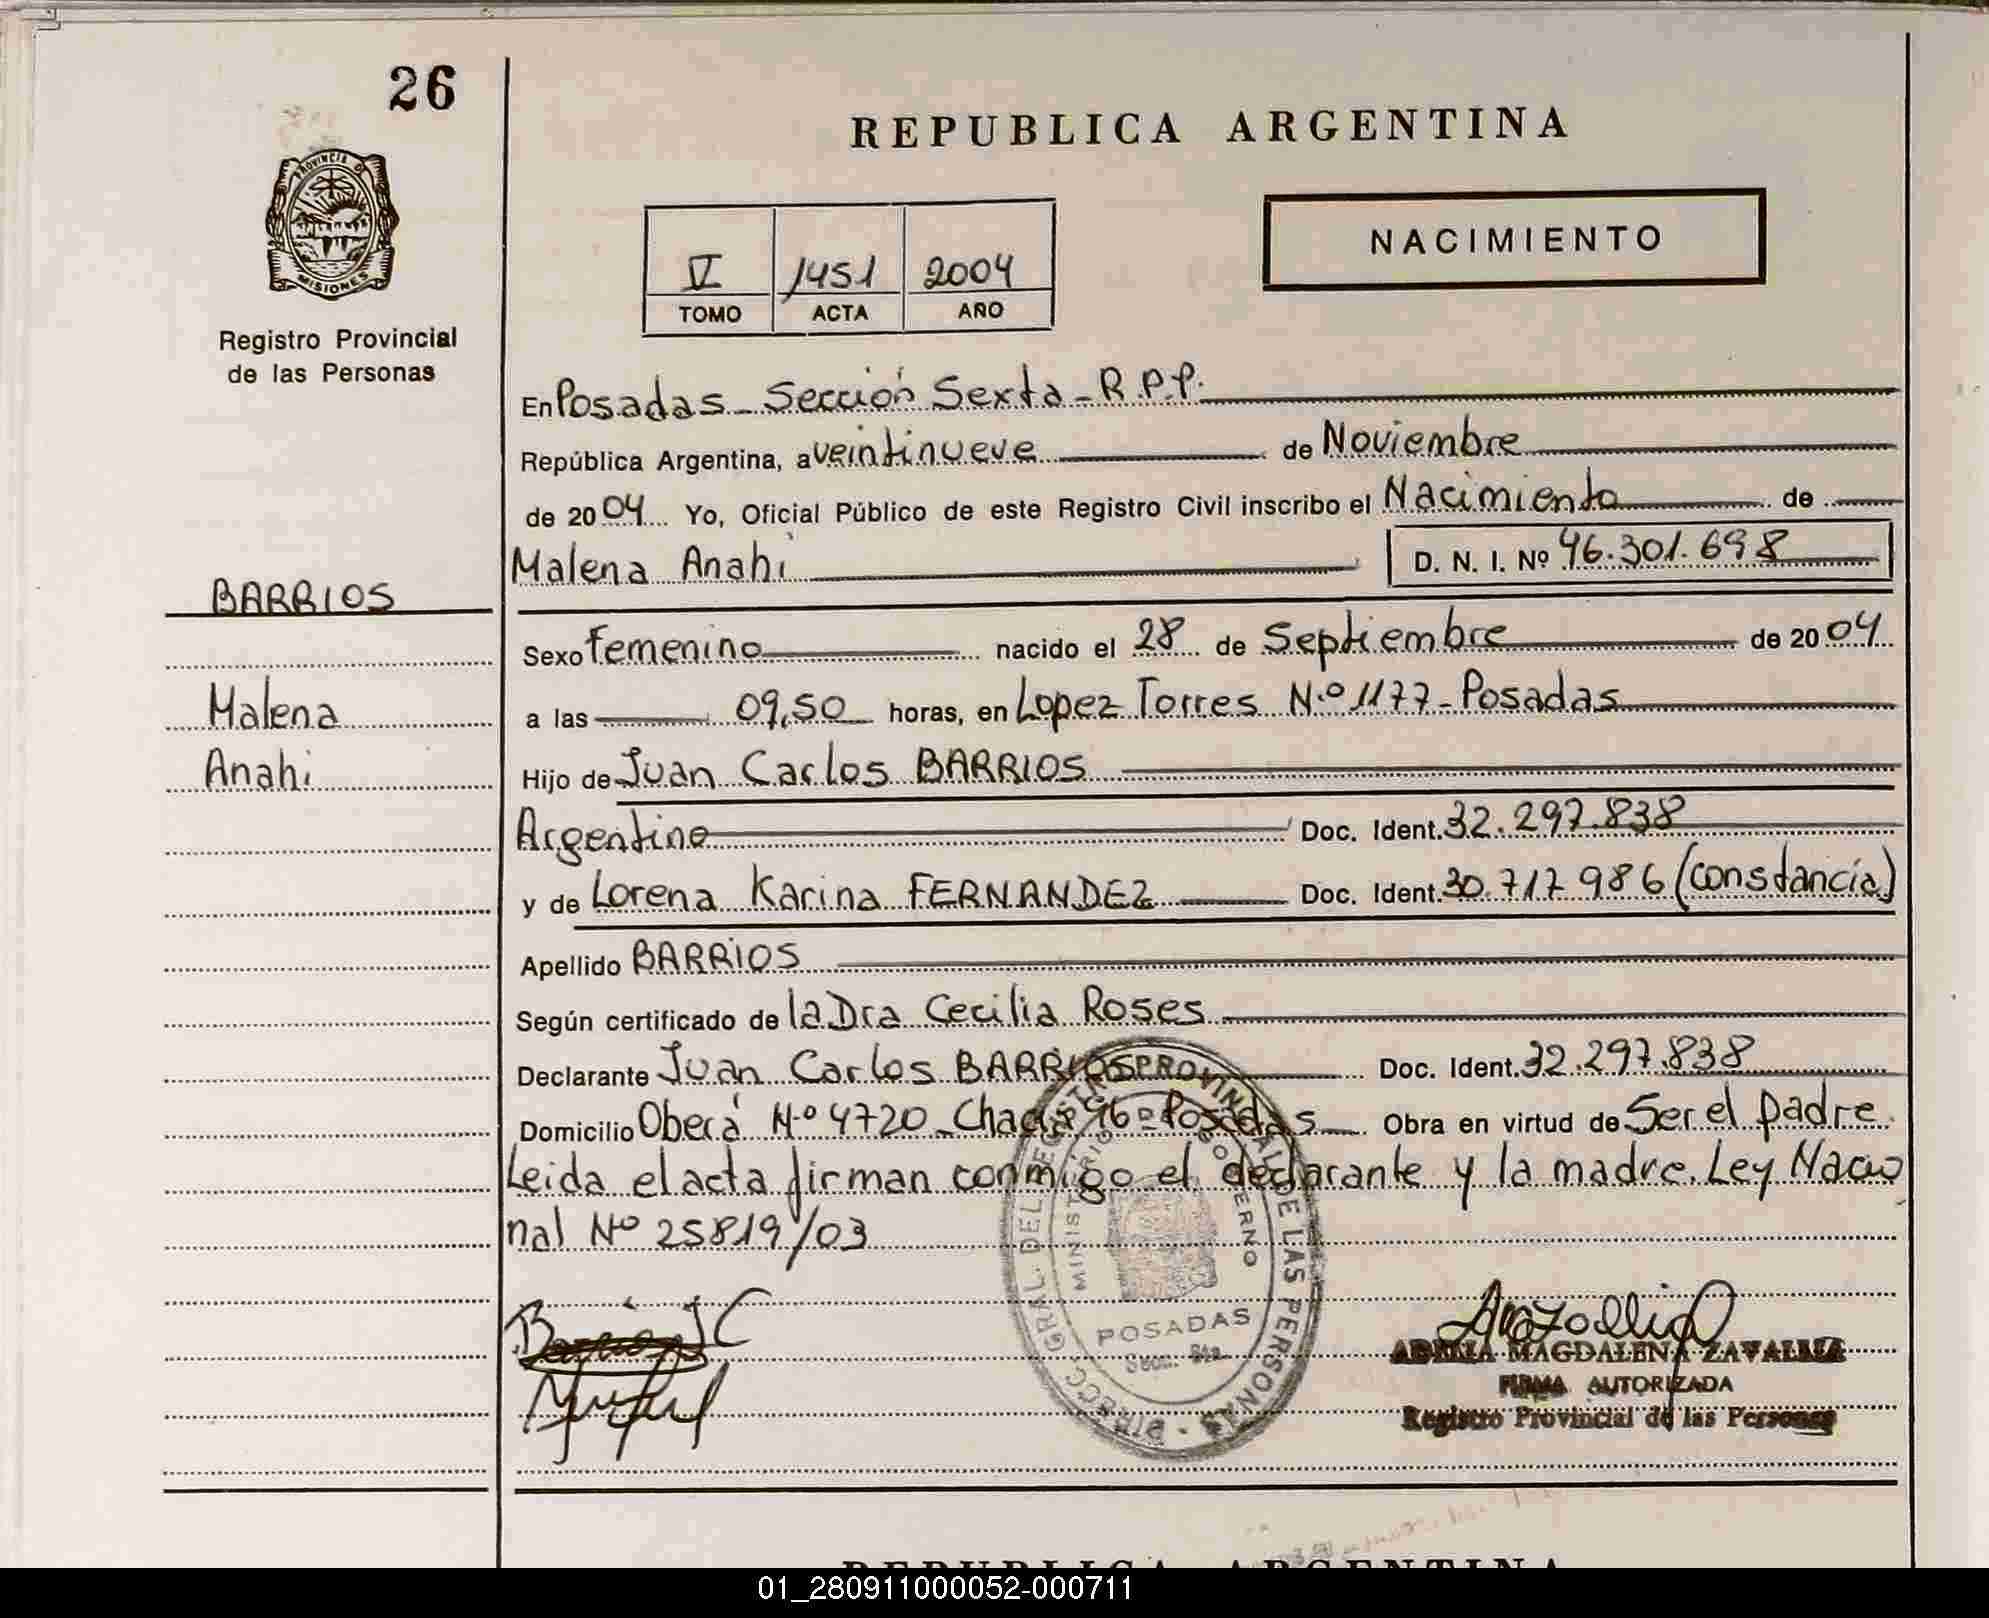 26
REPUBLICA ARGENTINA
PROVINCIA DE MISIONES
Registro Provincial
de las Personas
NACIMIENTO
V 1451 2004
TOMO ACTA AÑO
En Posadas - Sección Sexta - R.P.P.
República Argentina, a veintinueve de Noviembre
de 2004 Yo, Oficial Público de este Registro Civil inscribo el Nacimiento de
Malena Anahi D. N. I. Nº 46.301.698
BARRIOS
Malena
Anahi
Sexo Femenino nacido el 28 de Septiembre de 2004
a las 09,50 horas, en Lopez Torres N.º 1177 - Posadas
Hijo de Juan Carlos BARRIOS
Argentino Doc. Ident. 32.297.838
y de Lorena Karina FERNANDEZ Doc. Ident. 30.717.986 (constancia)
Apellido BARRIOS
Según certificado de la Dra Cecilia Roses
Declarante Juan Carlos BARRIOS Doc. Ident. 32.297.838
Domicilio Oberá N.º 4720 - Chacra 96 - Posadas Obra en virtud de Ser el padre.
Leida el acta firman conmigo el declarante y la madre. Ley Nacio
nal Nº 25819/03
DIRECC. GRAL. DEL REGISTRO PROVINCIAL DE LAS PERSONAS
MINISTERIO GOBIERNO
POSADAS
Secc. 6ta.
MAGDALENA ZAVALLIA
FIRMA AUTORIZADA
Registro Provincial de las Personas
REPUBLICA ARGENTINA
01_280911000052-000711